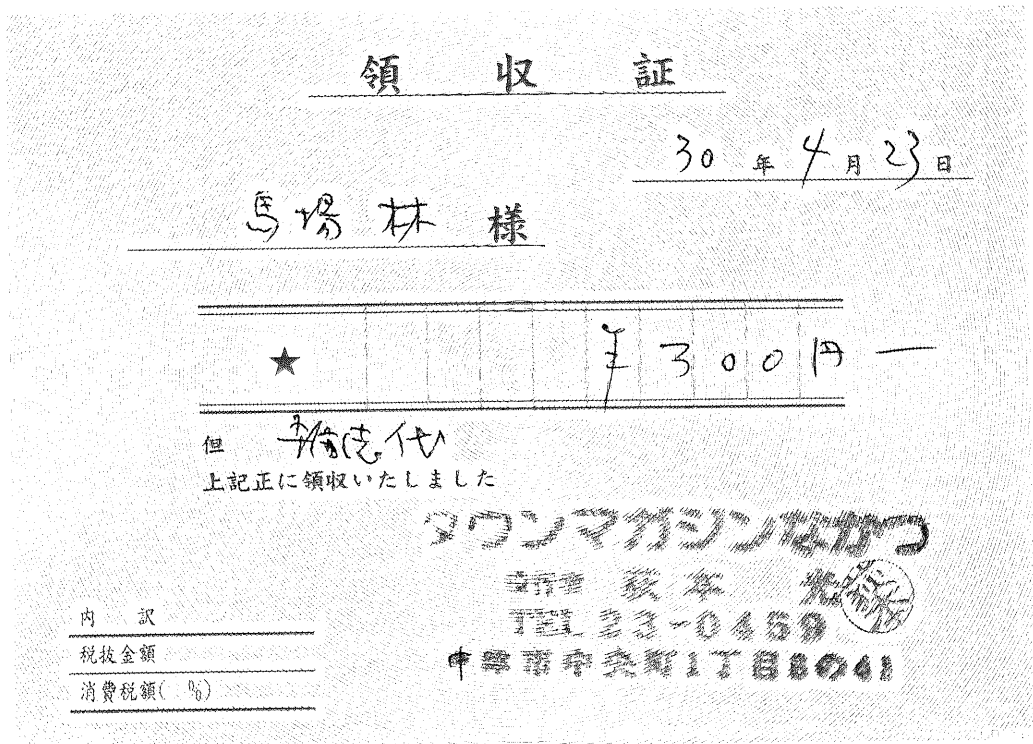 領 収 証
30 年 4 月 23 日
馬場 林 様
★ ¥ 300円 —
但 代
上記正に領収いたしました
タウンマガジンなかつ
発行者 荻本
TEL 23-0459
中津市中央町1丁目
内 訳
税抜金額
消費税額( %)